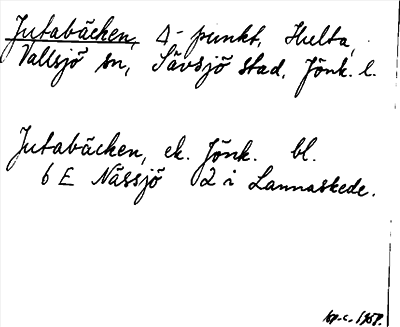 Jutabäcken, Δ-punkt, Hulta,
Vallsjö sn, Sävsjö stad, Jönk. l.
Jutabäcken, ek. Jönk. bl.
6 E Nässjö 2 i Lannaskede.
1957.